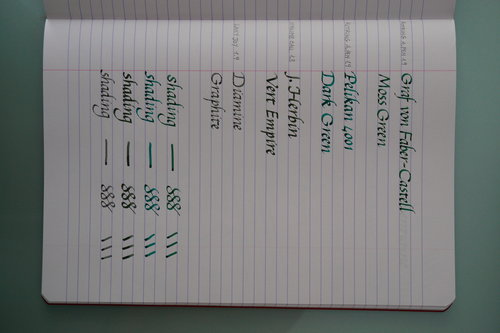 Graf von Faber-Castell
Moss Green
Pelikan 4001
Dark Green
J. Herbin
Vert Empire
Diamine
Graphite
shading — 888 ///
shading — 888 ///
shading — 888 ///
shading — 888 ///